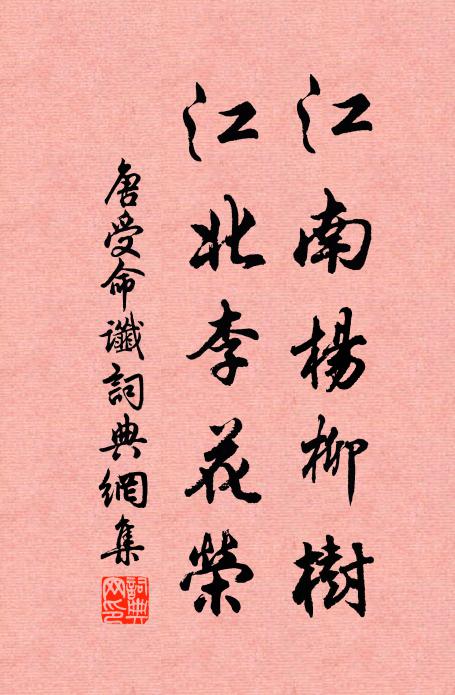 江南楊柳樹
江北李花榮
唐受命讖詞典網集
詞典網印